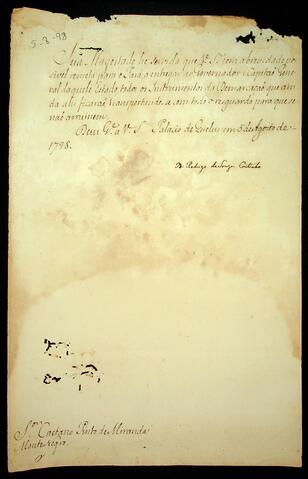 5-8-98
Sua Magestade he servida que V. S.ª com a brevidade pos
sivel remeta para o Pará, a entregar ao Governador e Capitão Gene
ral daquele Estado todos os Instrumentos da Demarcação que ain
da ali ficarão transportando-a com todo o resguardo para que se
não arruinem.
Deus G.e a V. S.ª Palacio de Queluz em 5 de Agosto de
1798.
D. Rodrigo de Souza Coutinho
S.or Caetano Pinto de Miranda
Monte Negro.